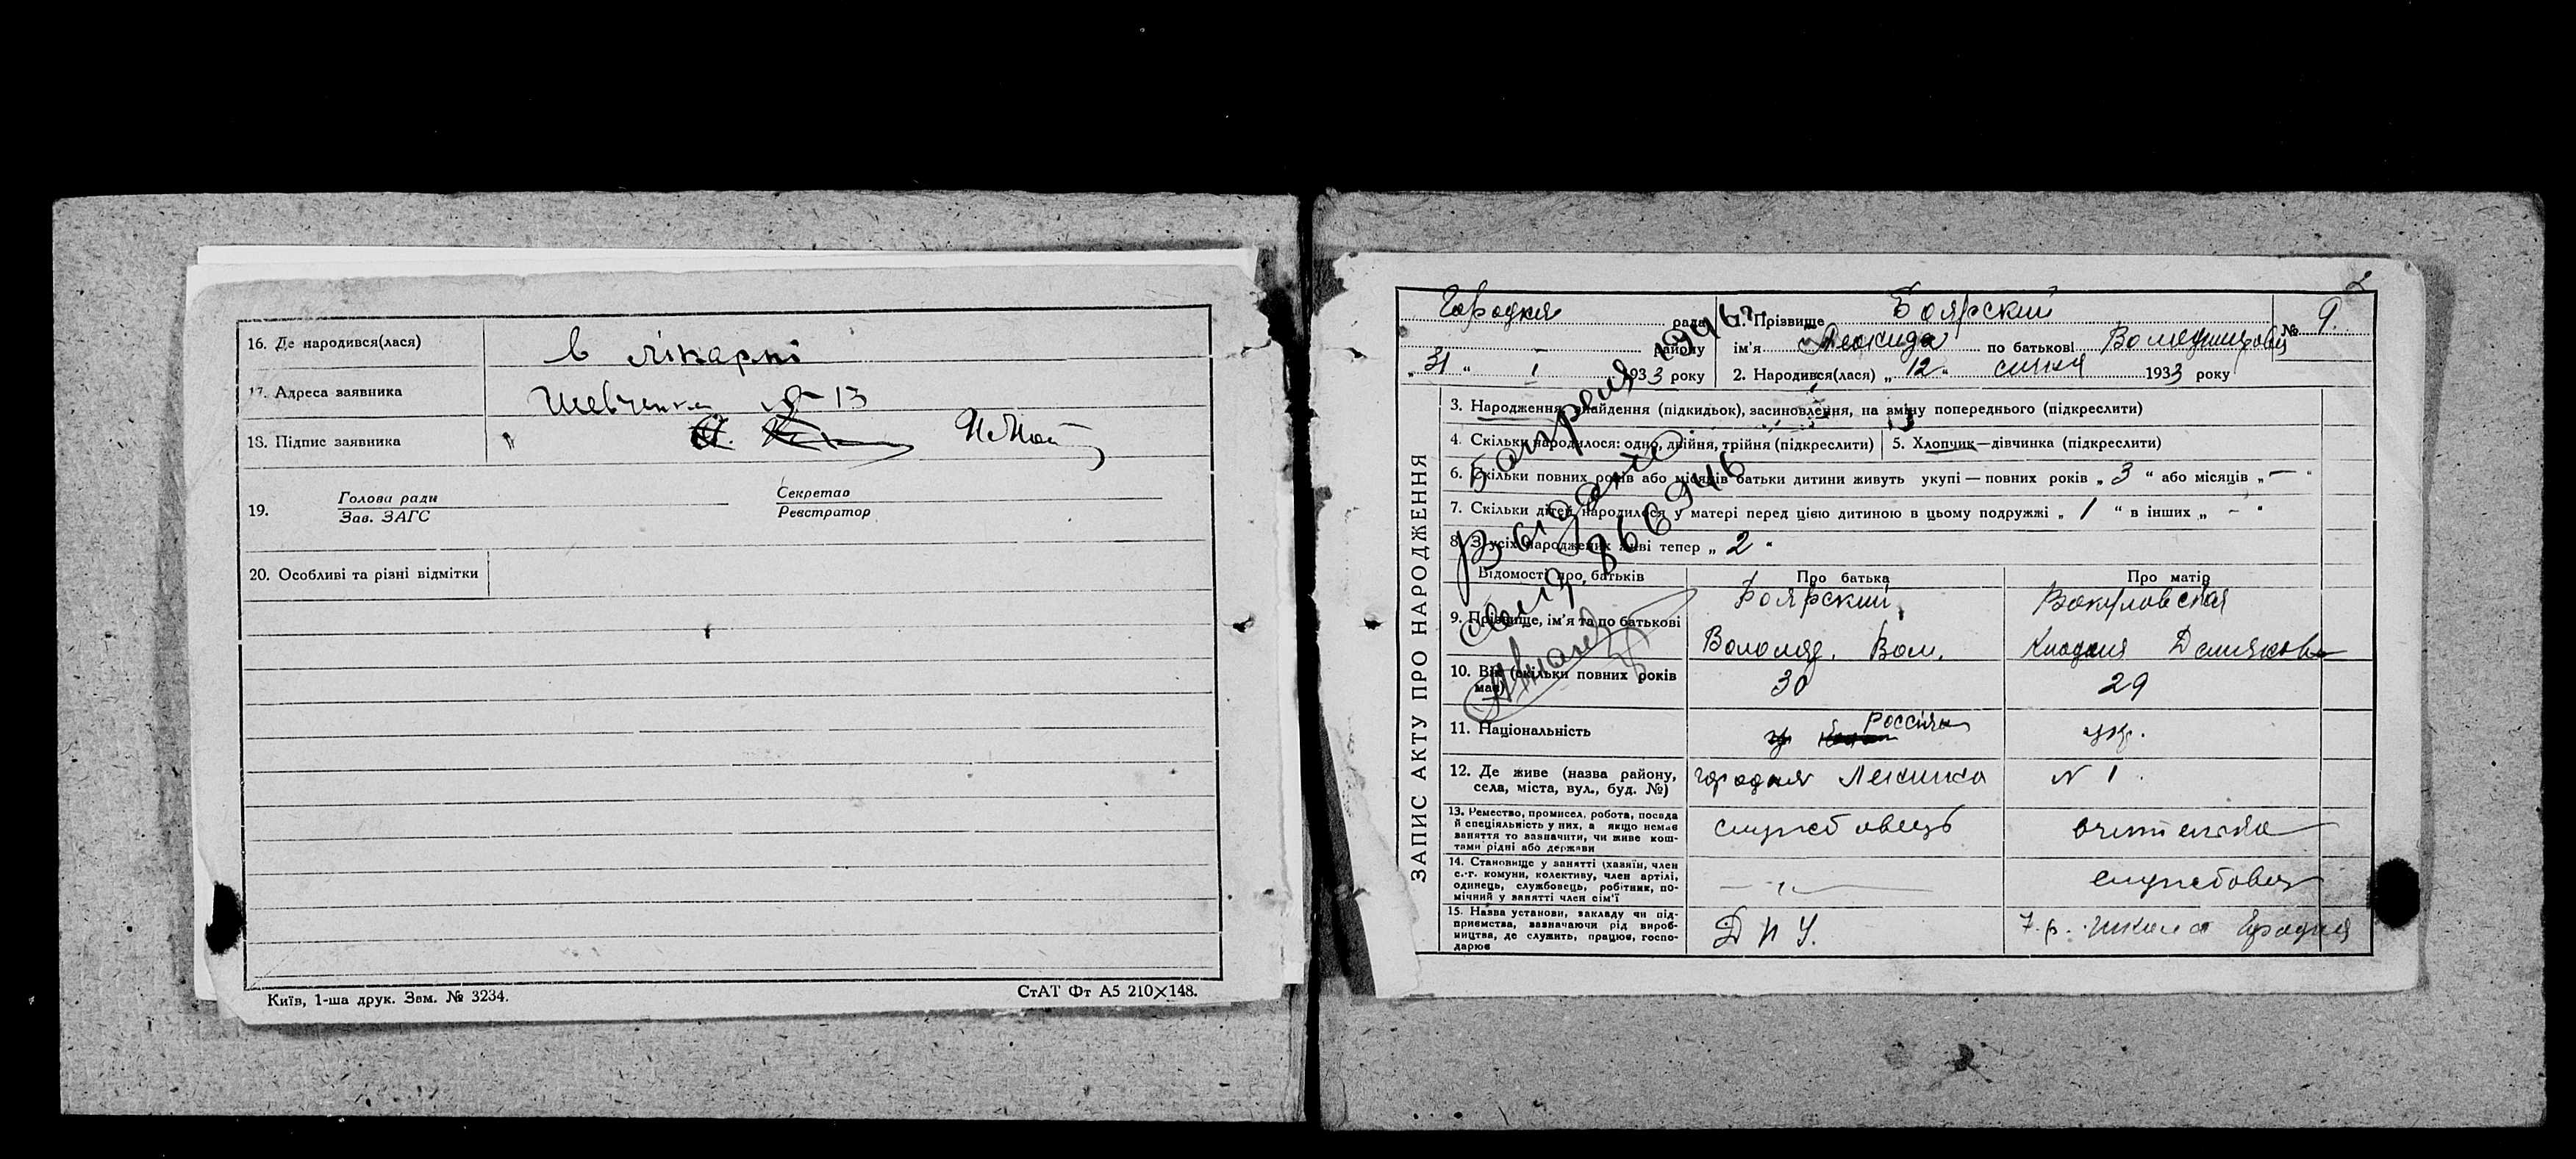 16. Де народився(лася) в лікарні
17. Адреса заявника Шевченка № 13
18. Підпис заявника
19. Голова ради Секретар
Зав. ЗАГС Реєстратор
20. Особливі та різні відмітки
Київ, 1-ша друк. Зам. № 3234. СтАТ Фт А5 210×148.
2
Городня рада 1. Прізвище Боярский № 9.
району ім'я Леонид по батькові
„ 31 “ I 1933 року 2. Народився(лася) „ 12 “ січня 1933 року
ЗАПИС АКТУ ПРО НАРОДЖЕННЯ
3. Народження, знайдення (підкидьок), засиновлення, на зміну попереднього (підкреслити)
4. Скільки народилося: одно, двійня, трійня (підкреслити) 5. Хлопчик—дівчинка (підкреслити)
6. Скільки повних років або місяців батьки дитини живуть укупі — повних років „ 3 “ або місяців „ — “
7. Скільки дітей народилося у матері перед цією дитиною в цьому подружжі „ 1 “ в інших „ – “
8. З усіх народжених живі тепер „ 2 “
Відомості про батьків Про батька Про матір
9. Прізвище, ім'я та по батькові Боярский Вакуловская
Володид. Вол. Клавдия
10. Вік (скільки повних років має) 30 29
11. Національність укр.
12. Де живе (назва району, Городня Ленинка № 1.
села, міста, вул., буд. №)
13. Ремество, промисел, робота, посада службовець вчителька
й спеціяльність у них, а якщо немає
заняття то зазначити, чи живе кош-
тами рідні або держави
14. Становище у занятті (хазяїн, член службовец
с.-г. комуни, колективу, член артілі,
одинець, службовець, робітник, по-
мічний у занятті член сім'ї
15. Назва установи, закладу чи під- Д П У. 7.р. школа Городня
приємства, зазначаючи рід вироб-
ництва, де служить, працює, госпо-
дарює
5 апреля 1946 г.
Выдано
866946